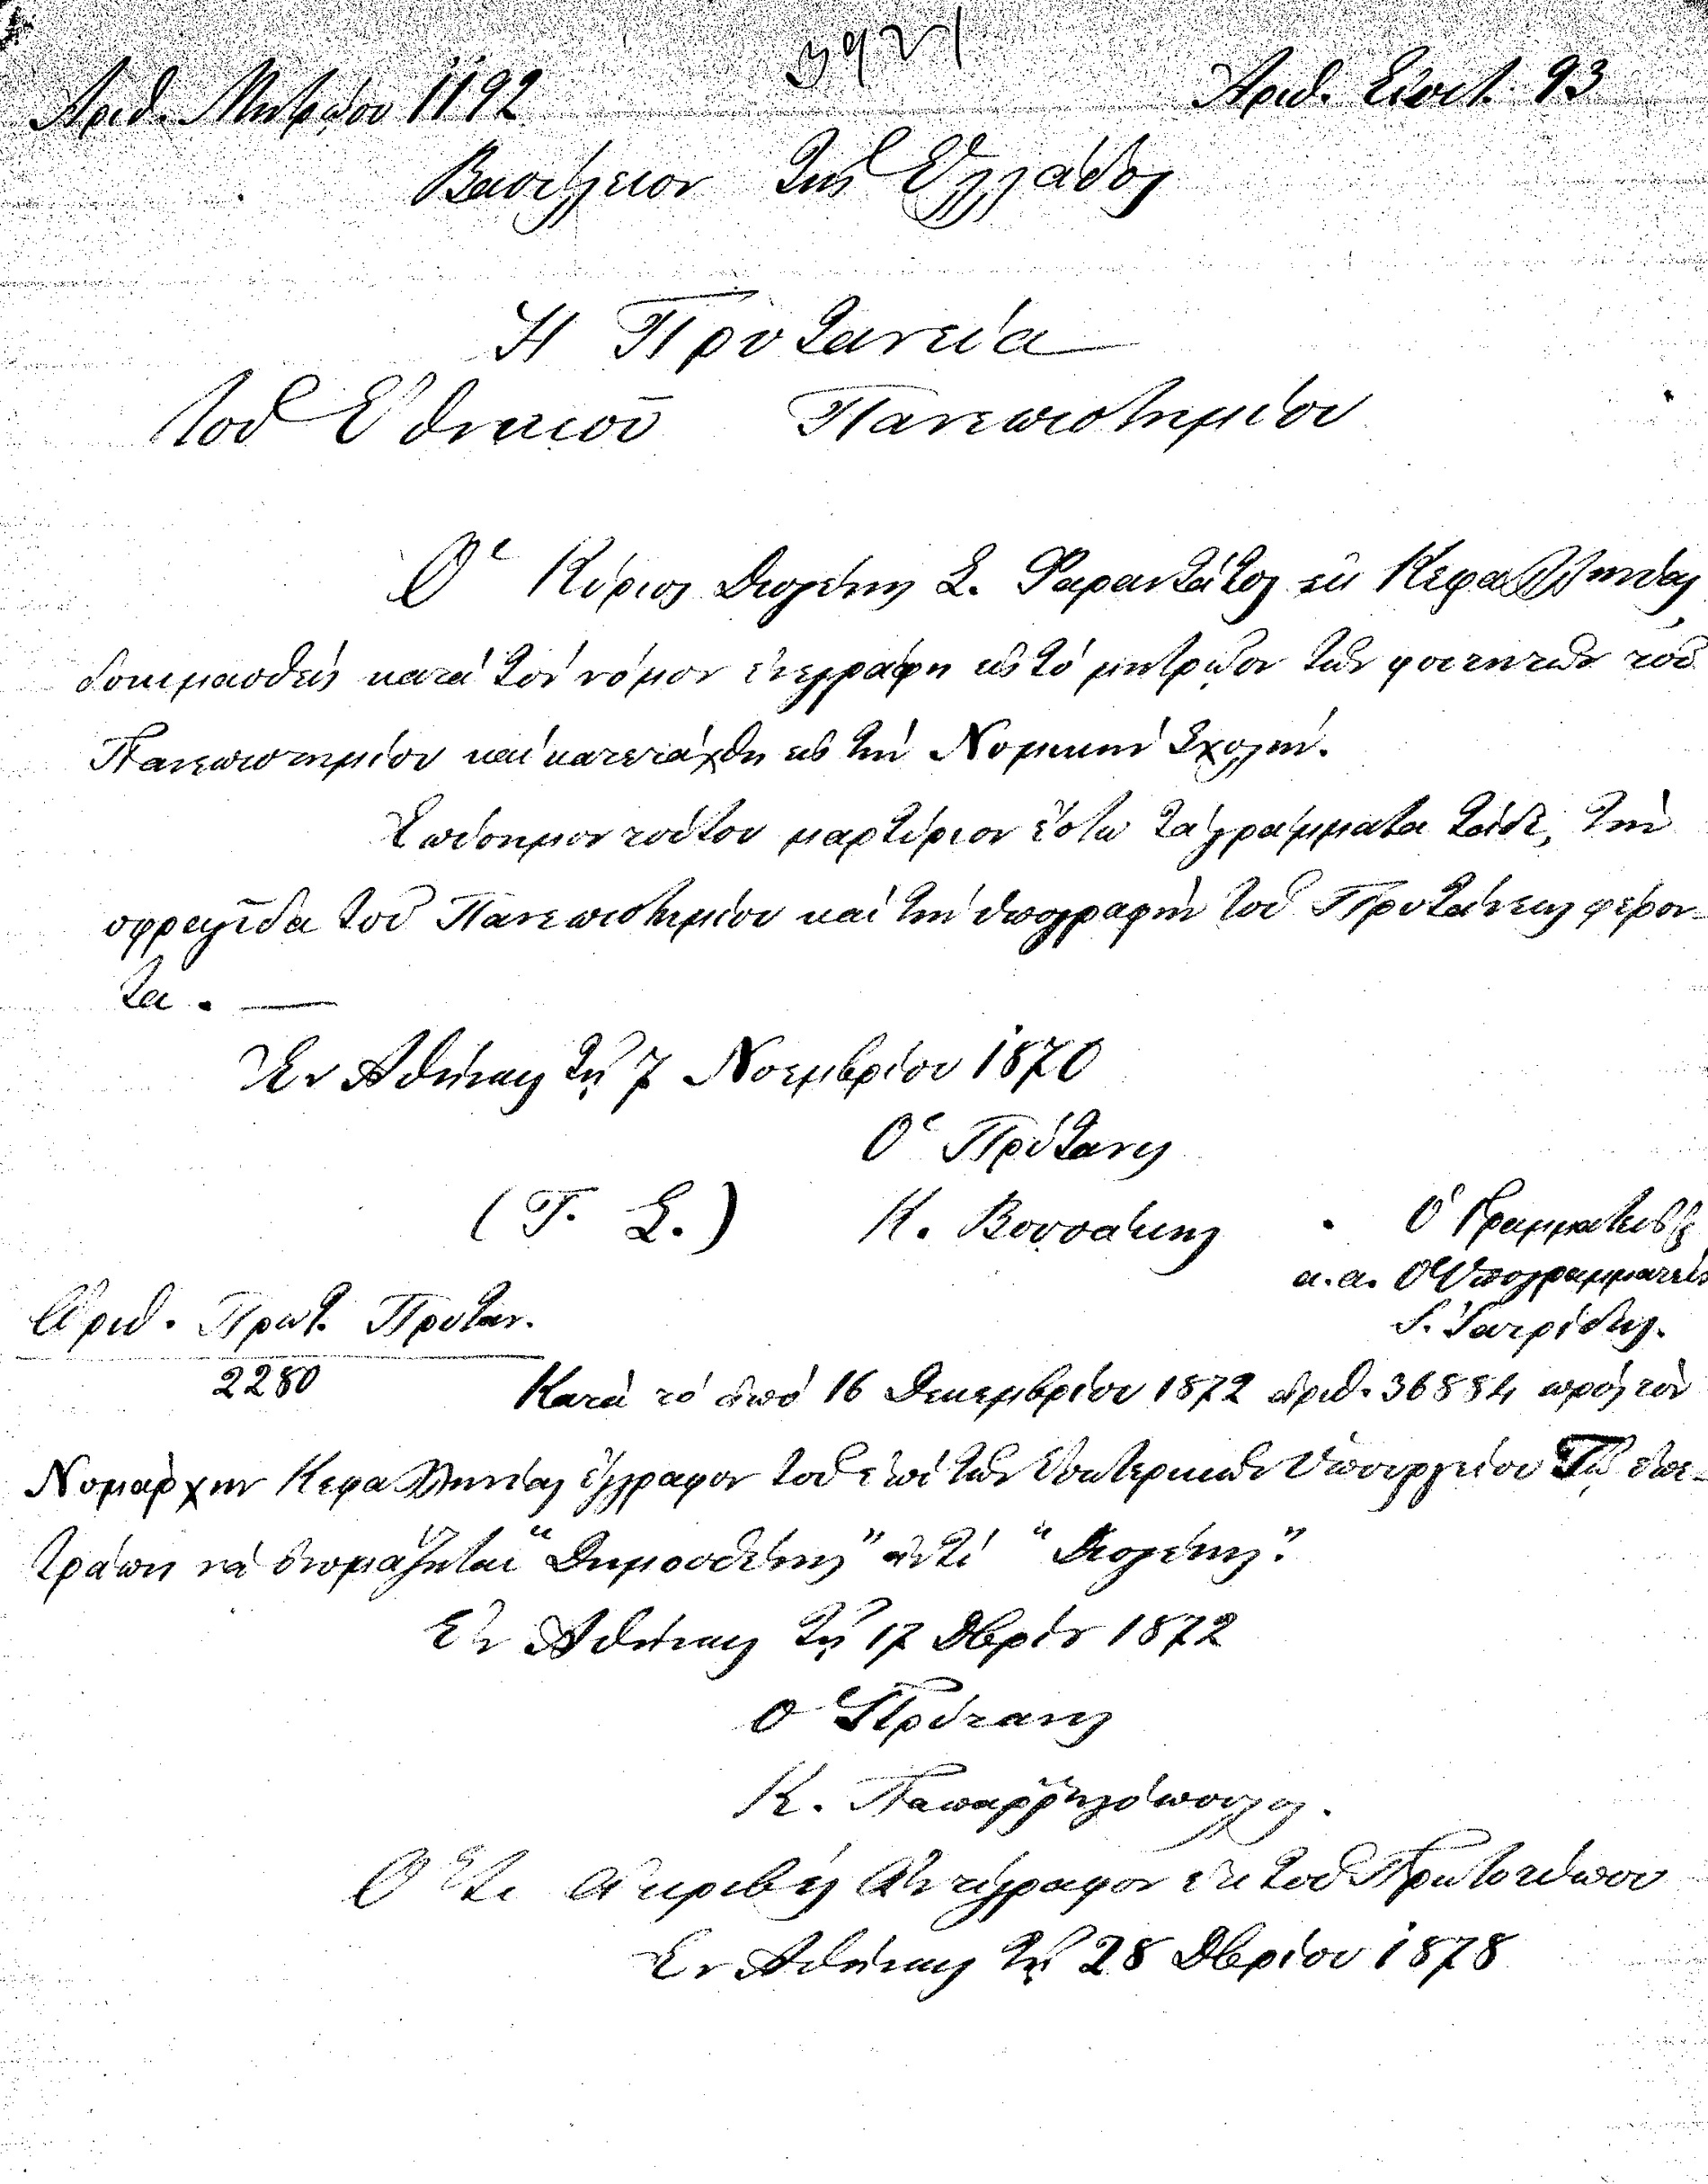 3921
Ἀριθ. Μητρῴου 1192
Ἀριθ. Εἰσιτ. 93
Βασίλειον τῆς Ἑλλάδος
Ἡ Πρυτανεία
τοῦ Ἐθνικοῦ Πανεπιστημίου
Ὁ Κύριος Διογένης Σ. Φαραντάτος ἐκ Κεφαλληνίας,
δοκιμασθείς κατά τόν νόμον ἐνεγράφη εἰς τό μητρῷον τῶν φοιτητῶν τοῦ
Πανεπιστημίου καί κατετάχθη εἰς τήν Νομικήν Σχολήν.
Ἐπίσημον τούτου μαρτύριον ἔστω τά γράμματα τάδε, τήν
σφραγῖδα τοῦ Πανεπιστημίου καί τήν ὑπογραφήν τοῦ Πρυτάνεως φέρον-
τα. —
Ἐν Ἀθήναις τῇ 7 Νοεμβρίου 1870
Ὁ Πρύτανις
(Τ. Σ.) Κ. Βουσάκης
Ὁ Γραμματεύς
α.α. Ὁ Ὑπογραμματεύς
Ἀριθ. Πρωτ. Πρυταν.
2280
Κατά τό ἀπό 16 Δεκεμβρίου 1872 ἀριθ. 36884 πρός τόν
Νομάρχην Κεφαλληνίας ἔγγραφον τοῦ ἐπί τῶν Ἐσωτερικῶν Ὑπουργείου Τῷ ἐπε-
τράπη νά ὀνομάζηται "Δημοσθένης" ἀντί "Διογένης".
Ἐν Ἀθήναις τῇ 17 Δβρίου 1872
Ὁ Πρύτανις
Κ. Παπαρρηγόπουλος.
Ὅτι ἀκριβές Ἀντίγραφον ἐκ τοῦ Πρωτοτύπου
Ἐν Ἀθήναις τῇ 28 Δβρίου 1878